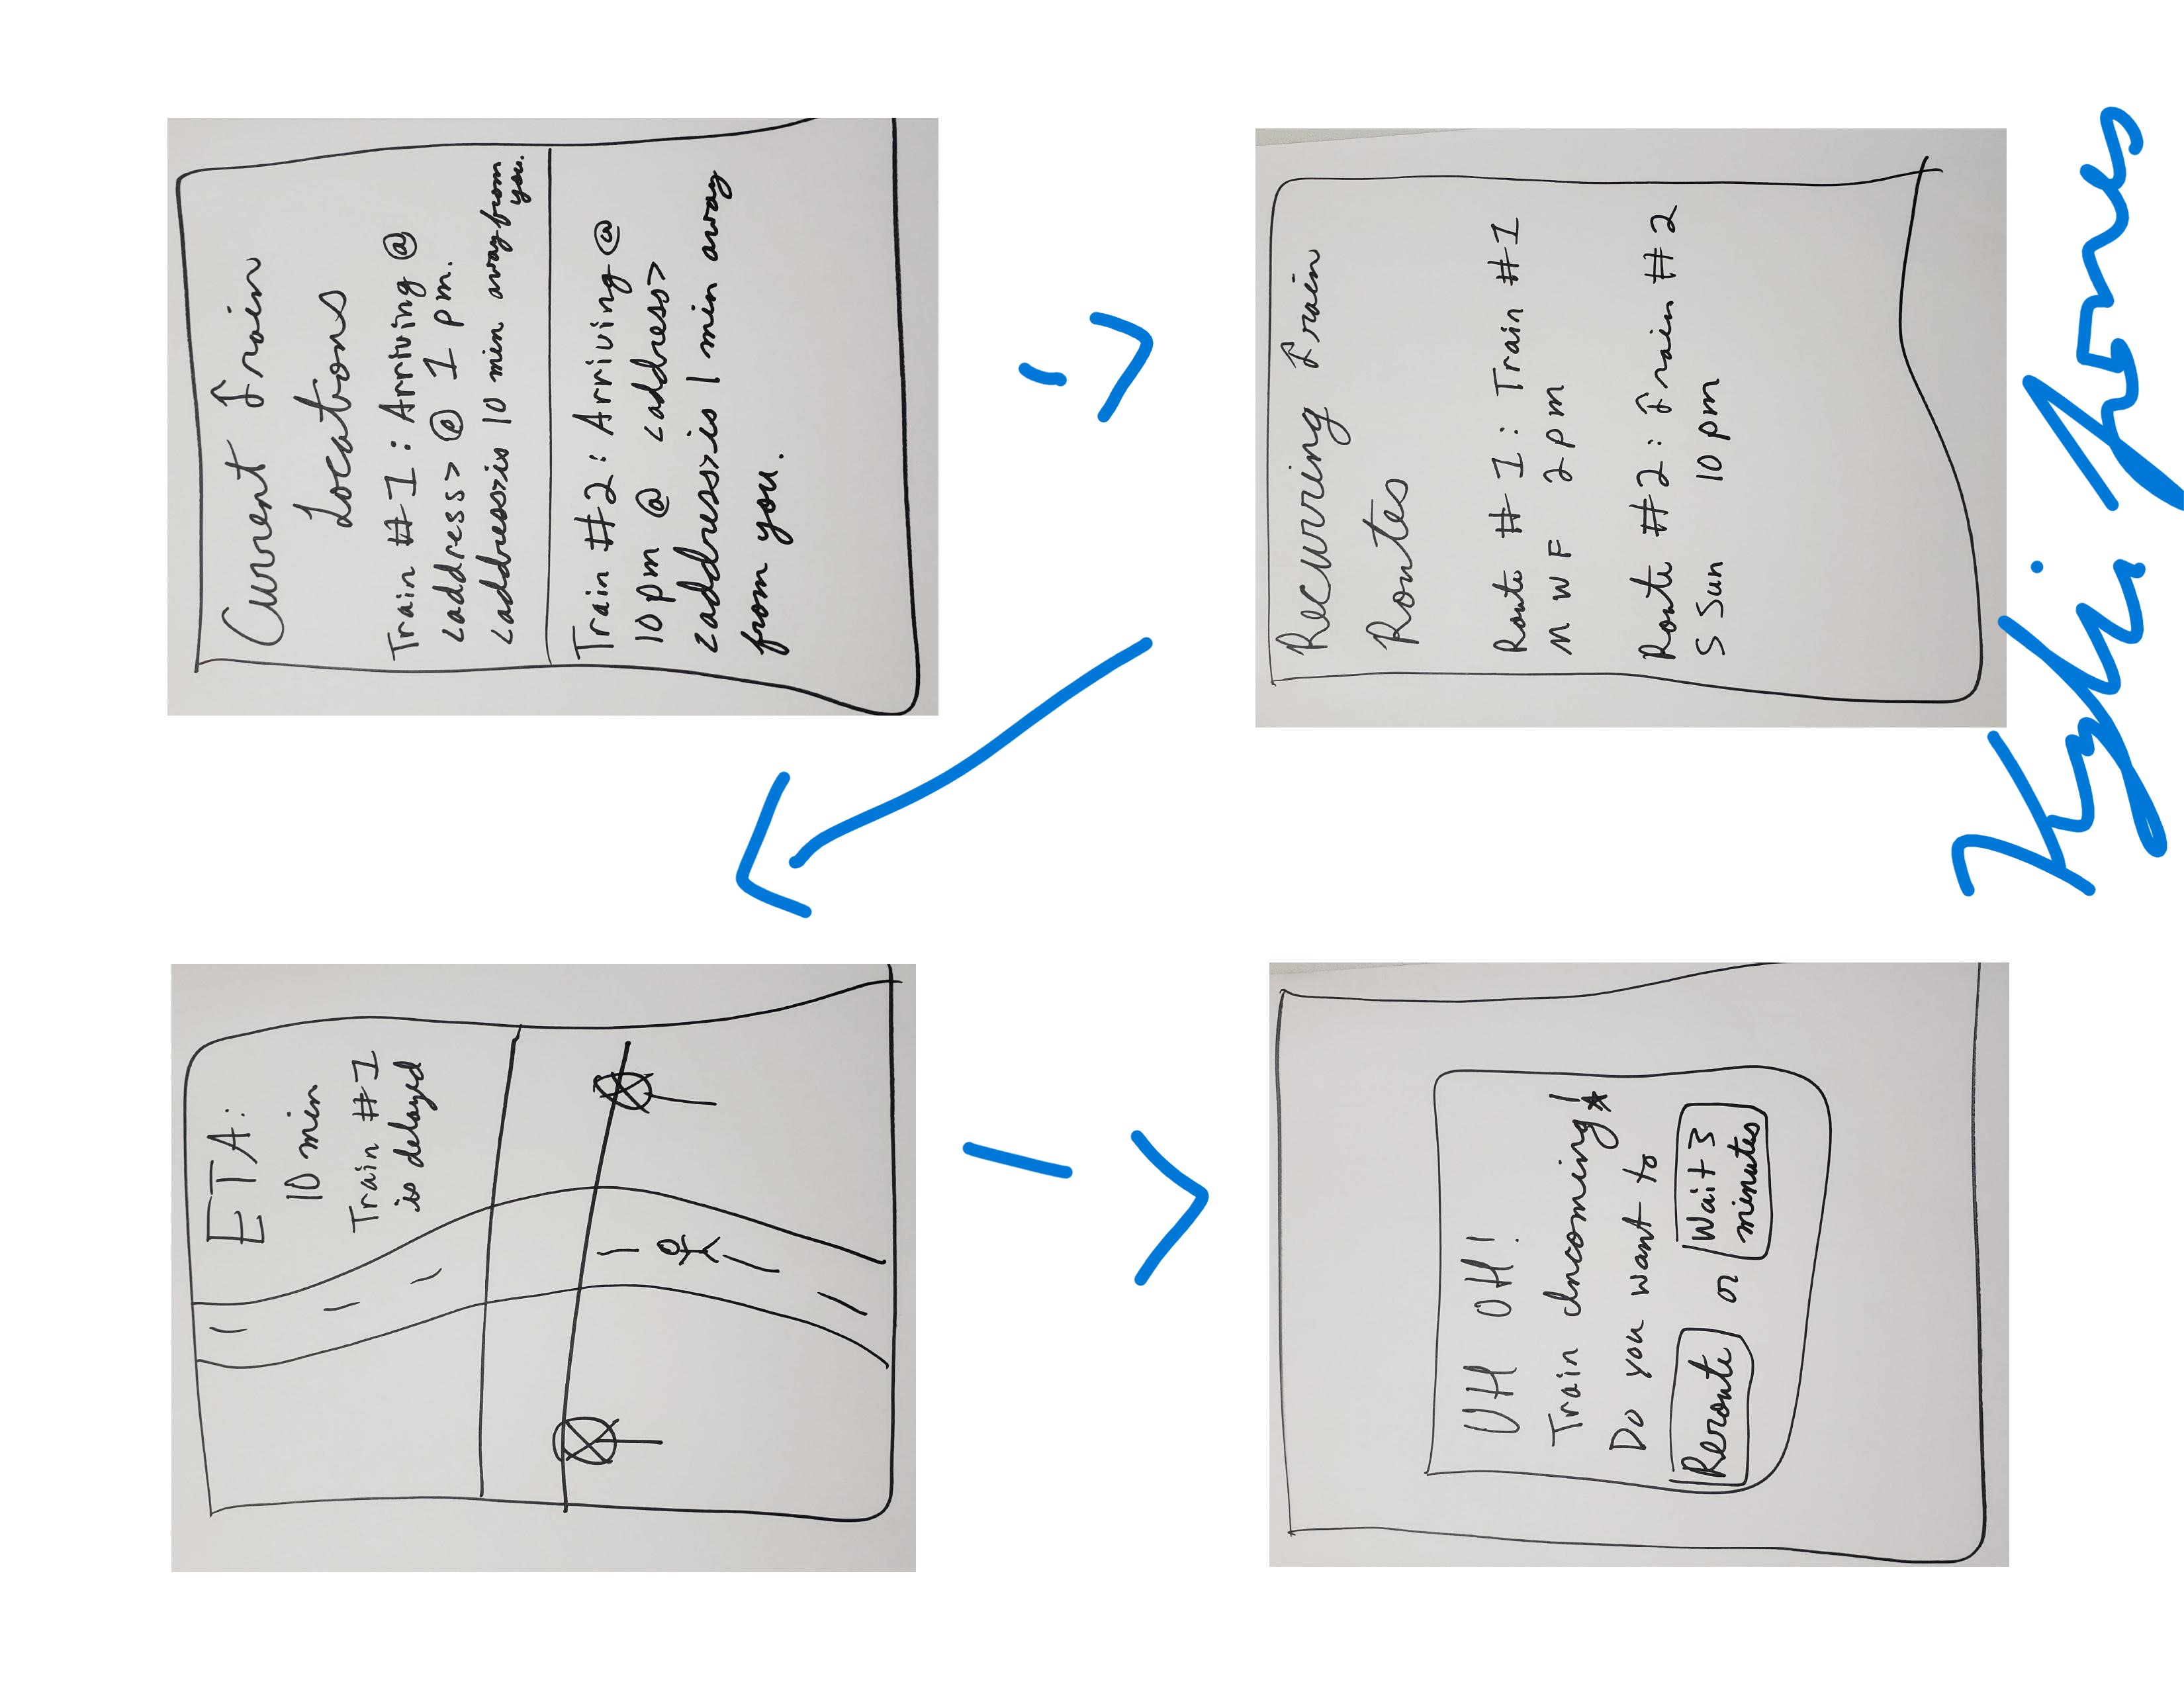 Current Train
Locations
Train #1: Arriving @
<address> @ 1 pm.
<address>is 10 min away from
you.
Train #2: Arriving @
10pm @ <address>
<address>is 1 min away
from you.
Recurring Train
Routes
Route #1: Train #1
M W F 2pm
Route #2: Train #2
S Sun 10pm
ETA:
10 min
Train #1
is delayd
UH OH!
Train Incoming!
Do you want to
Reroute or Wait 3
minutes
Kyli Jones